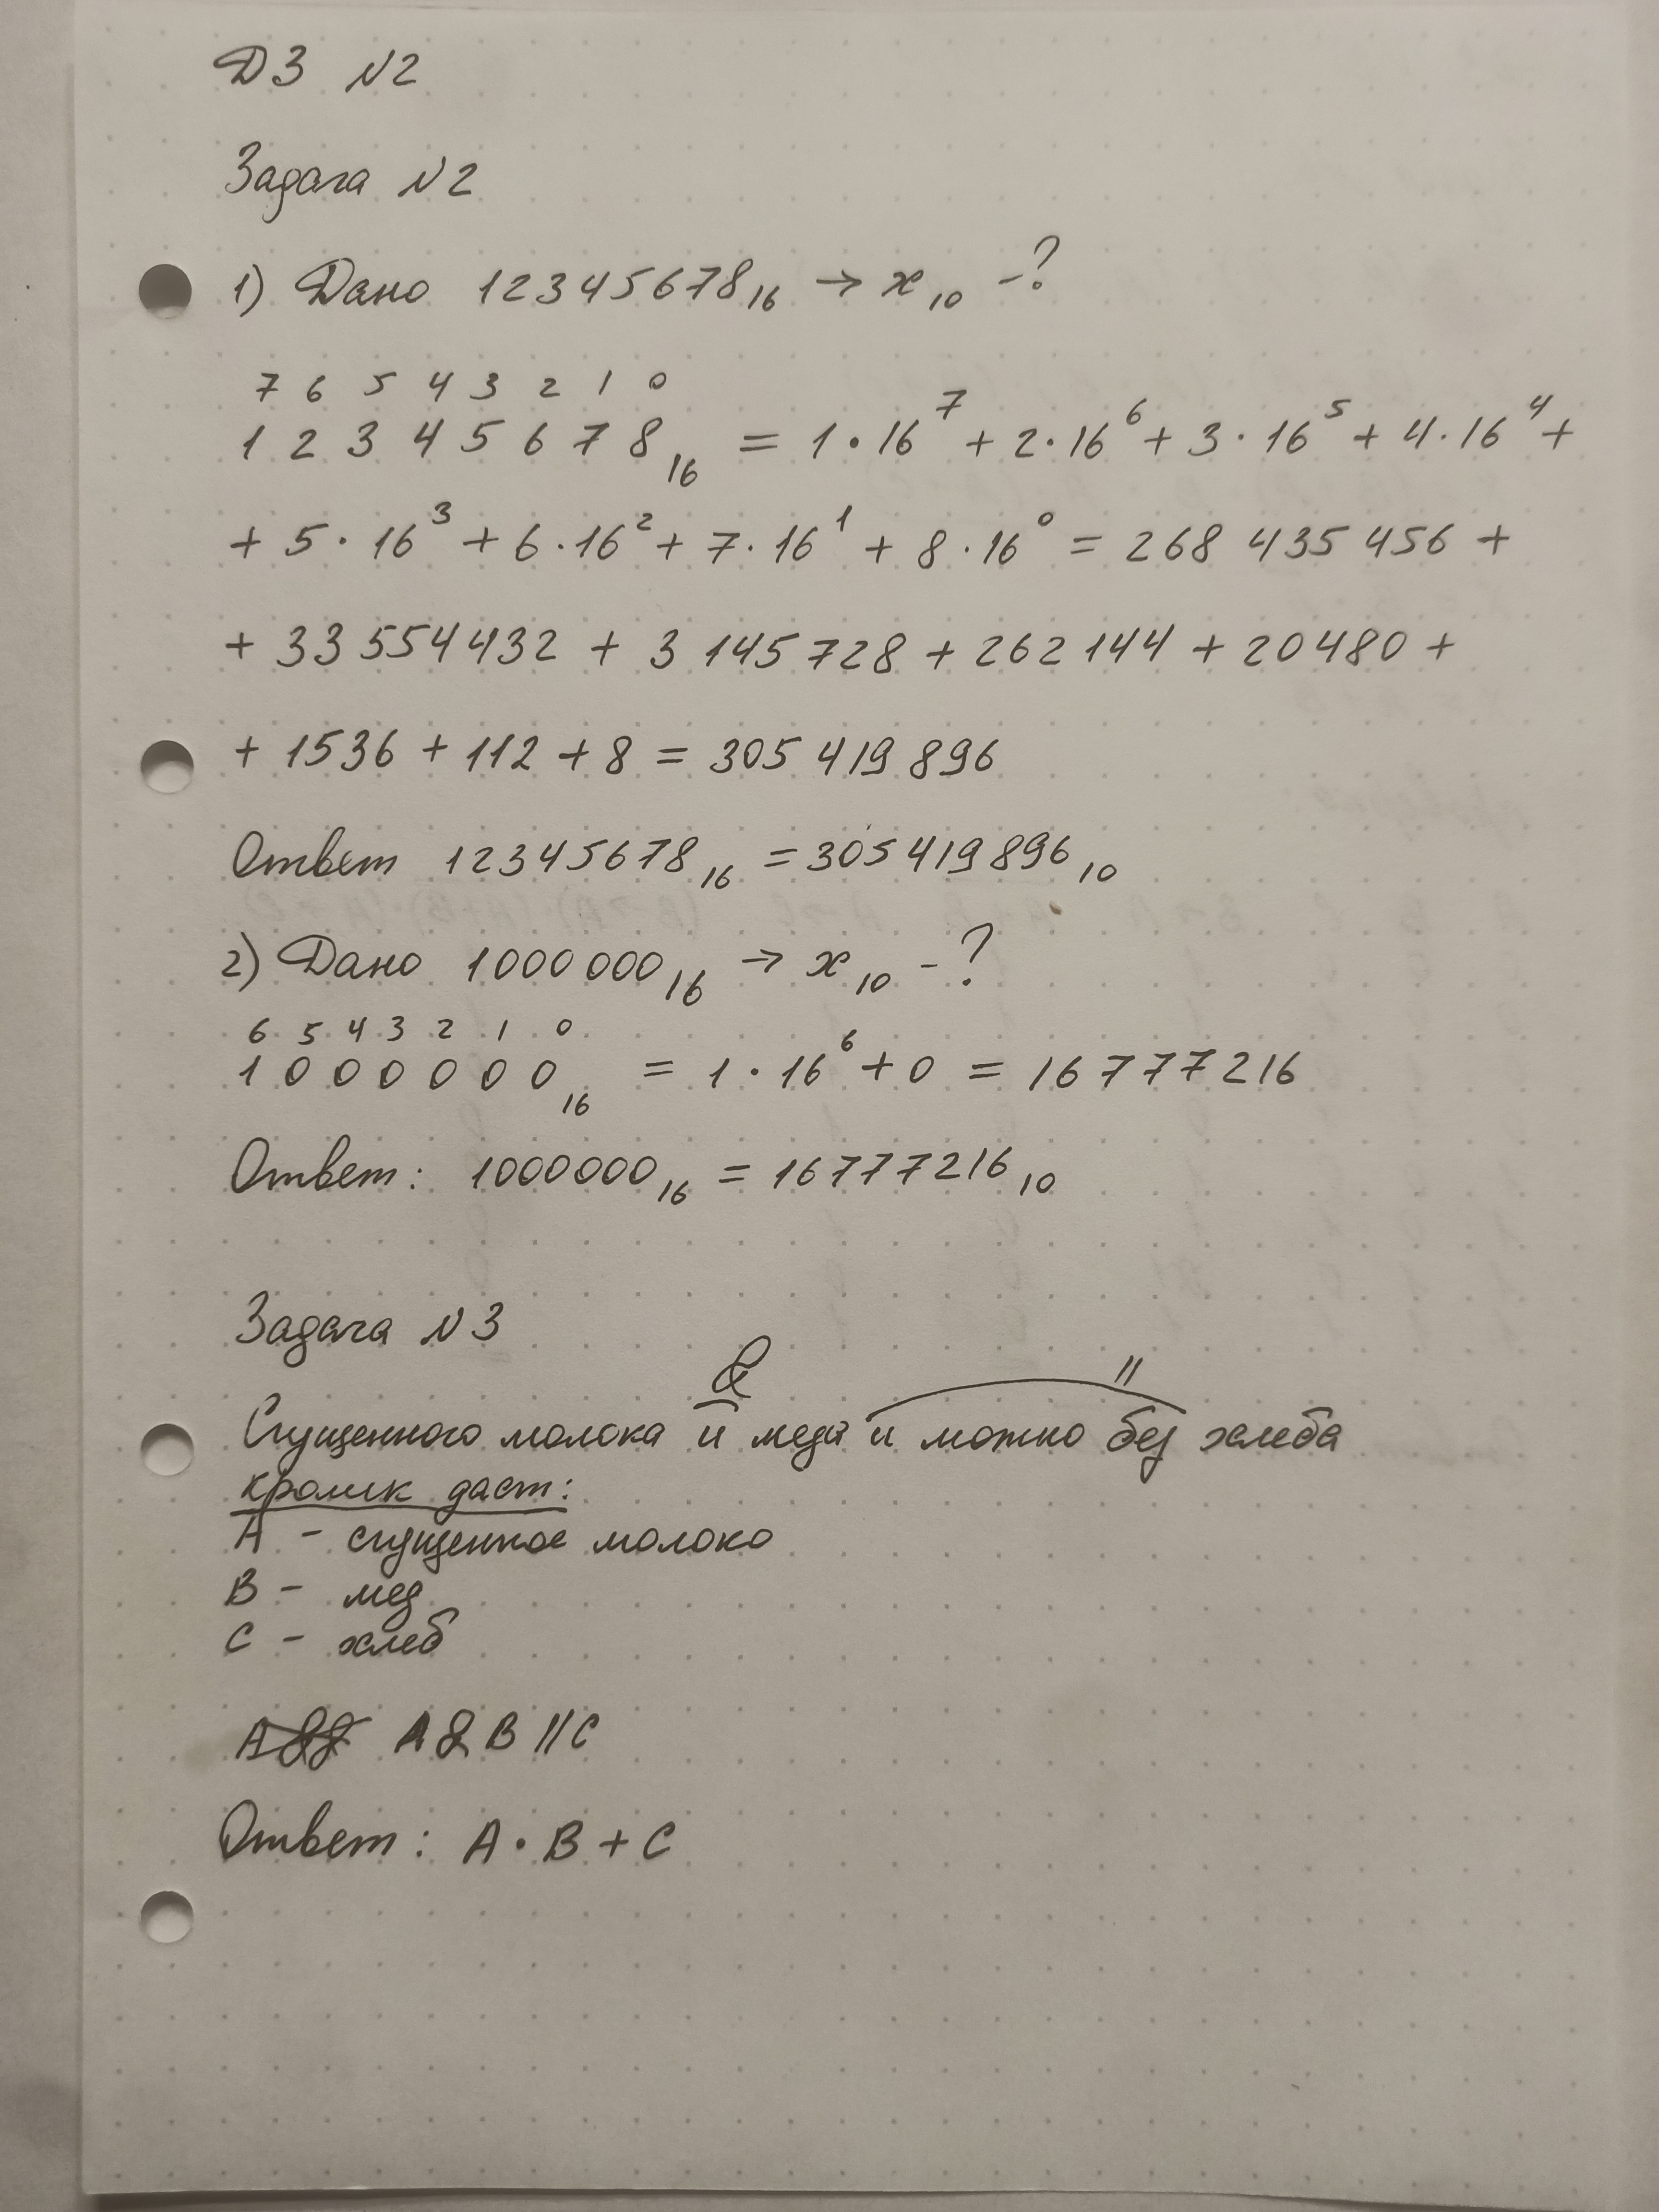 ДЗ №2
Задача №2
1) Дано 12345678₁₆ → x₁₀ -?
7 6 5 4 3 2 1 0
1 2 3 4 5 6 7 8₁₆ = 1·16⁷ + 2·16⁶ + 3·16⁵ + 4·16⁴ +
+ 5·16³ + 6·16² + 7·16¹ + 8·16⁰ = 268 435 456 +
+ 33 554 432 + 3 145 728 + 262 144 + 20480 +
+ 1536 + 112 + 8 = 305 419 896
Ответ 12345678₁₆ = 305 419 896₁₀
2) Дано 1000 000₁₆ → x₁₀ - ?
6 5 4 3 2 1 0
1 0 0 0 0 0 0₁₆ = 1·16⁶ + 0 = 16 777 216
Ответ: 1000000₁₆ = 16777216₁₀
Задача №3
& ||
Сгущенного молока и меда и можно без хлеба
кролик даст:
A - сгущенное молоко
B - мед
C - хлеб
A & B || C
Ответ: A·B + C